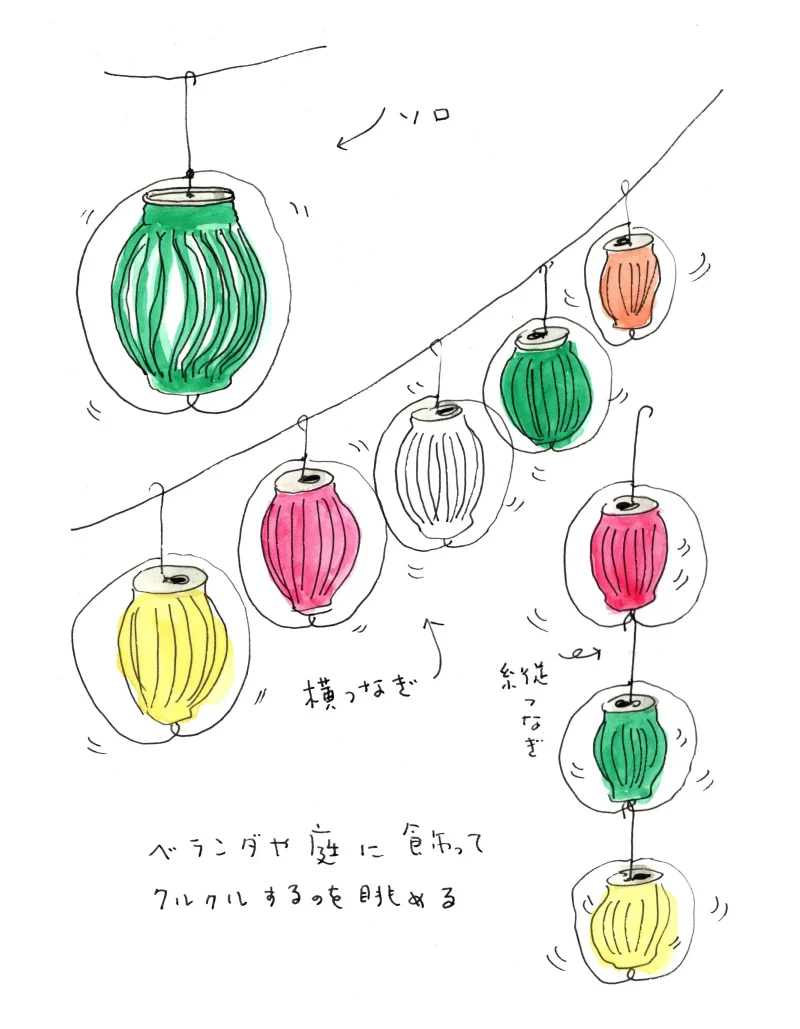 ソロ
横つなぎ
縦つなぎ
ベランダや庭に飾って
クルクルするのを眺める